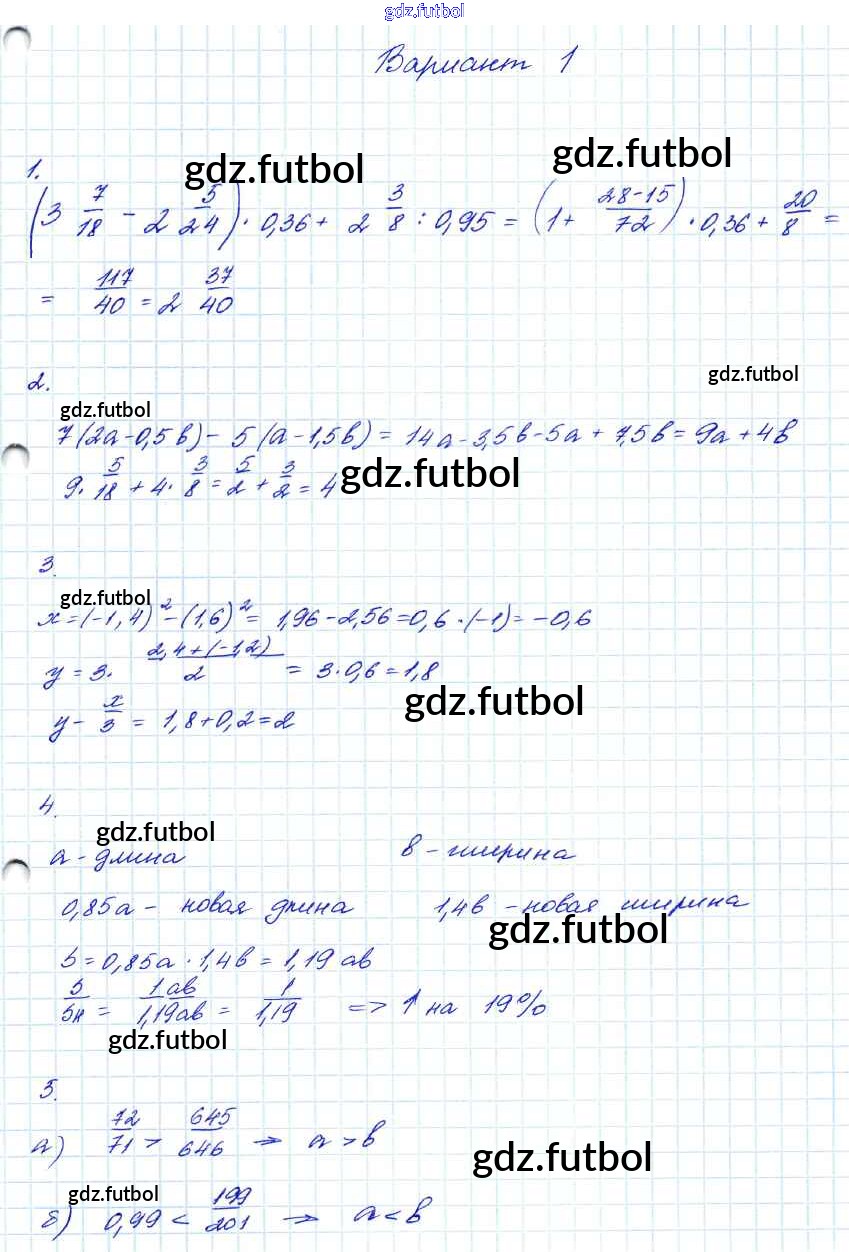 gdz.futbol
Вариант 1
gdz.futbol
gdz.futbol
1.
(3 7/18 - 2 5/24) · 0,36 + 2 3/8 : 0,95 = (1 + (28-15)/72) · 0,36 + 20/8 =
= 117/40 = 2 37/40
gdz.futbol
2.
gdz.futbol
7(2a-0,5b) - 5(a-1,5b) = 14a-3,5b-5a+7,5b = 9a+4b
9 · 5/18 + 4 · 3/8 = 5/2 + 3/2 = 4
gdz.futbol
3.
gdz.futbol
x = (-1,4)² - (1,6)² = 1,96 - 2,56 = 0,6 · (-1) = -0,6
y = 3 · (2,4+(-1,2))/2 = 3 · 0,6 = 1,8
gdz.futbol
y - x/3 = 1,8 + 0,2 = 2
4.
gdz.futbol
a - длина в - ширина
0,85a - новая длина 1,4в - новая ширина
gdz.futbol
S = 0,85a · 1,4в = 1,19 aв
S/Sн = 1aв/1,19aв = 1/1,19 => ↑ на 19%
gdz.futbol
5.
а) 72/71 > 645/646 → a > b
gdz.futbol
gdz.futbol
б) 0,99 < 199/201 → a < b